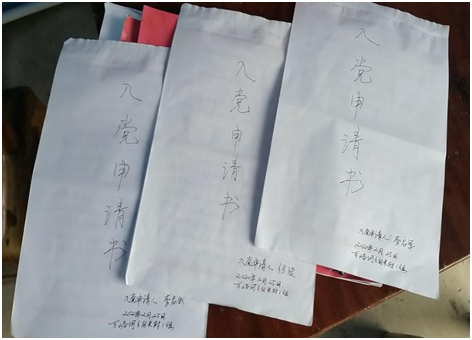 入党申请书
入党申请人
2020年2月25日
入党申请书
入党申请人 徐
2020年2月25日
入党申请书
入党申请人 李
2020年2月25日